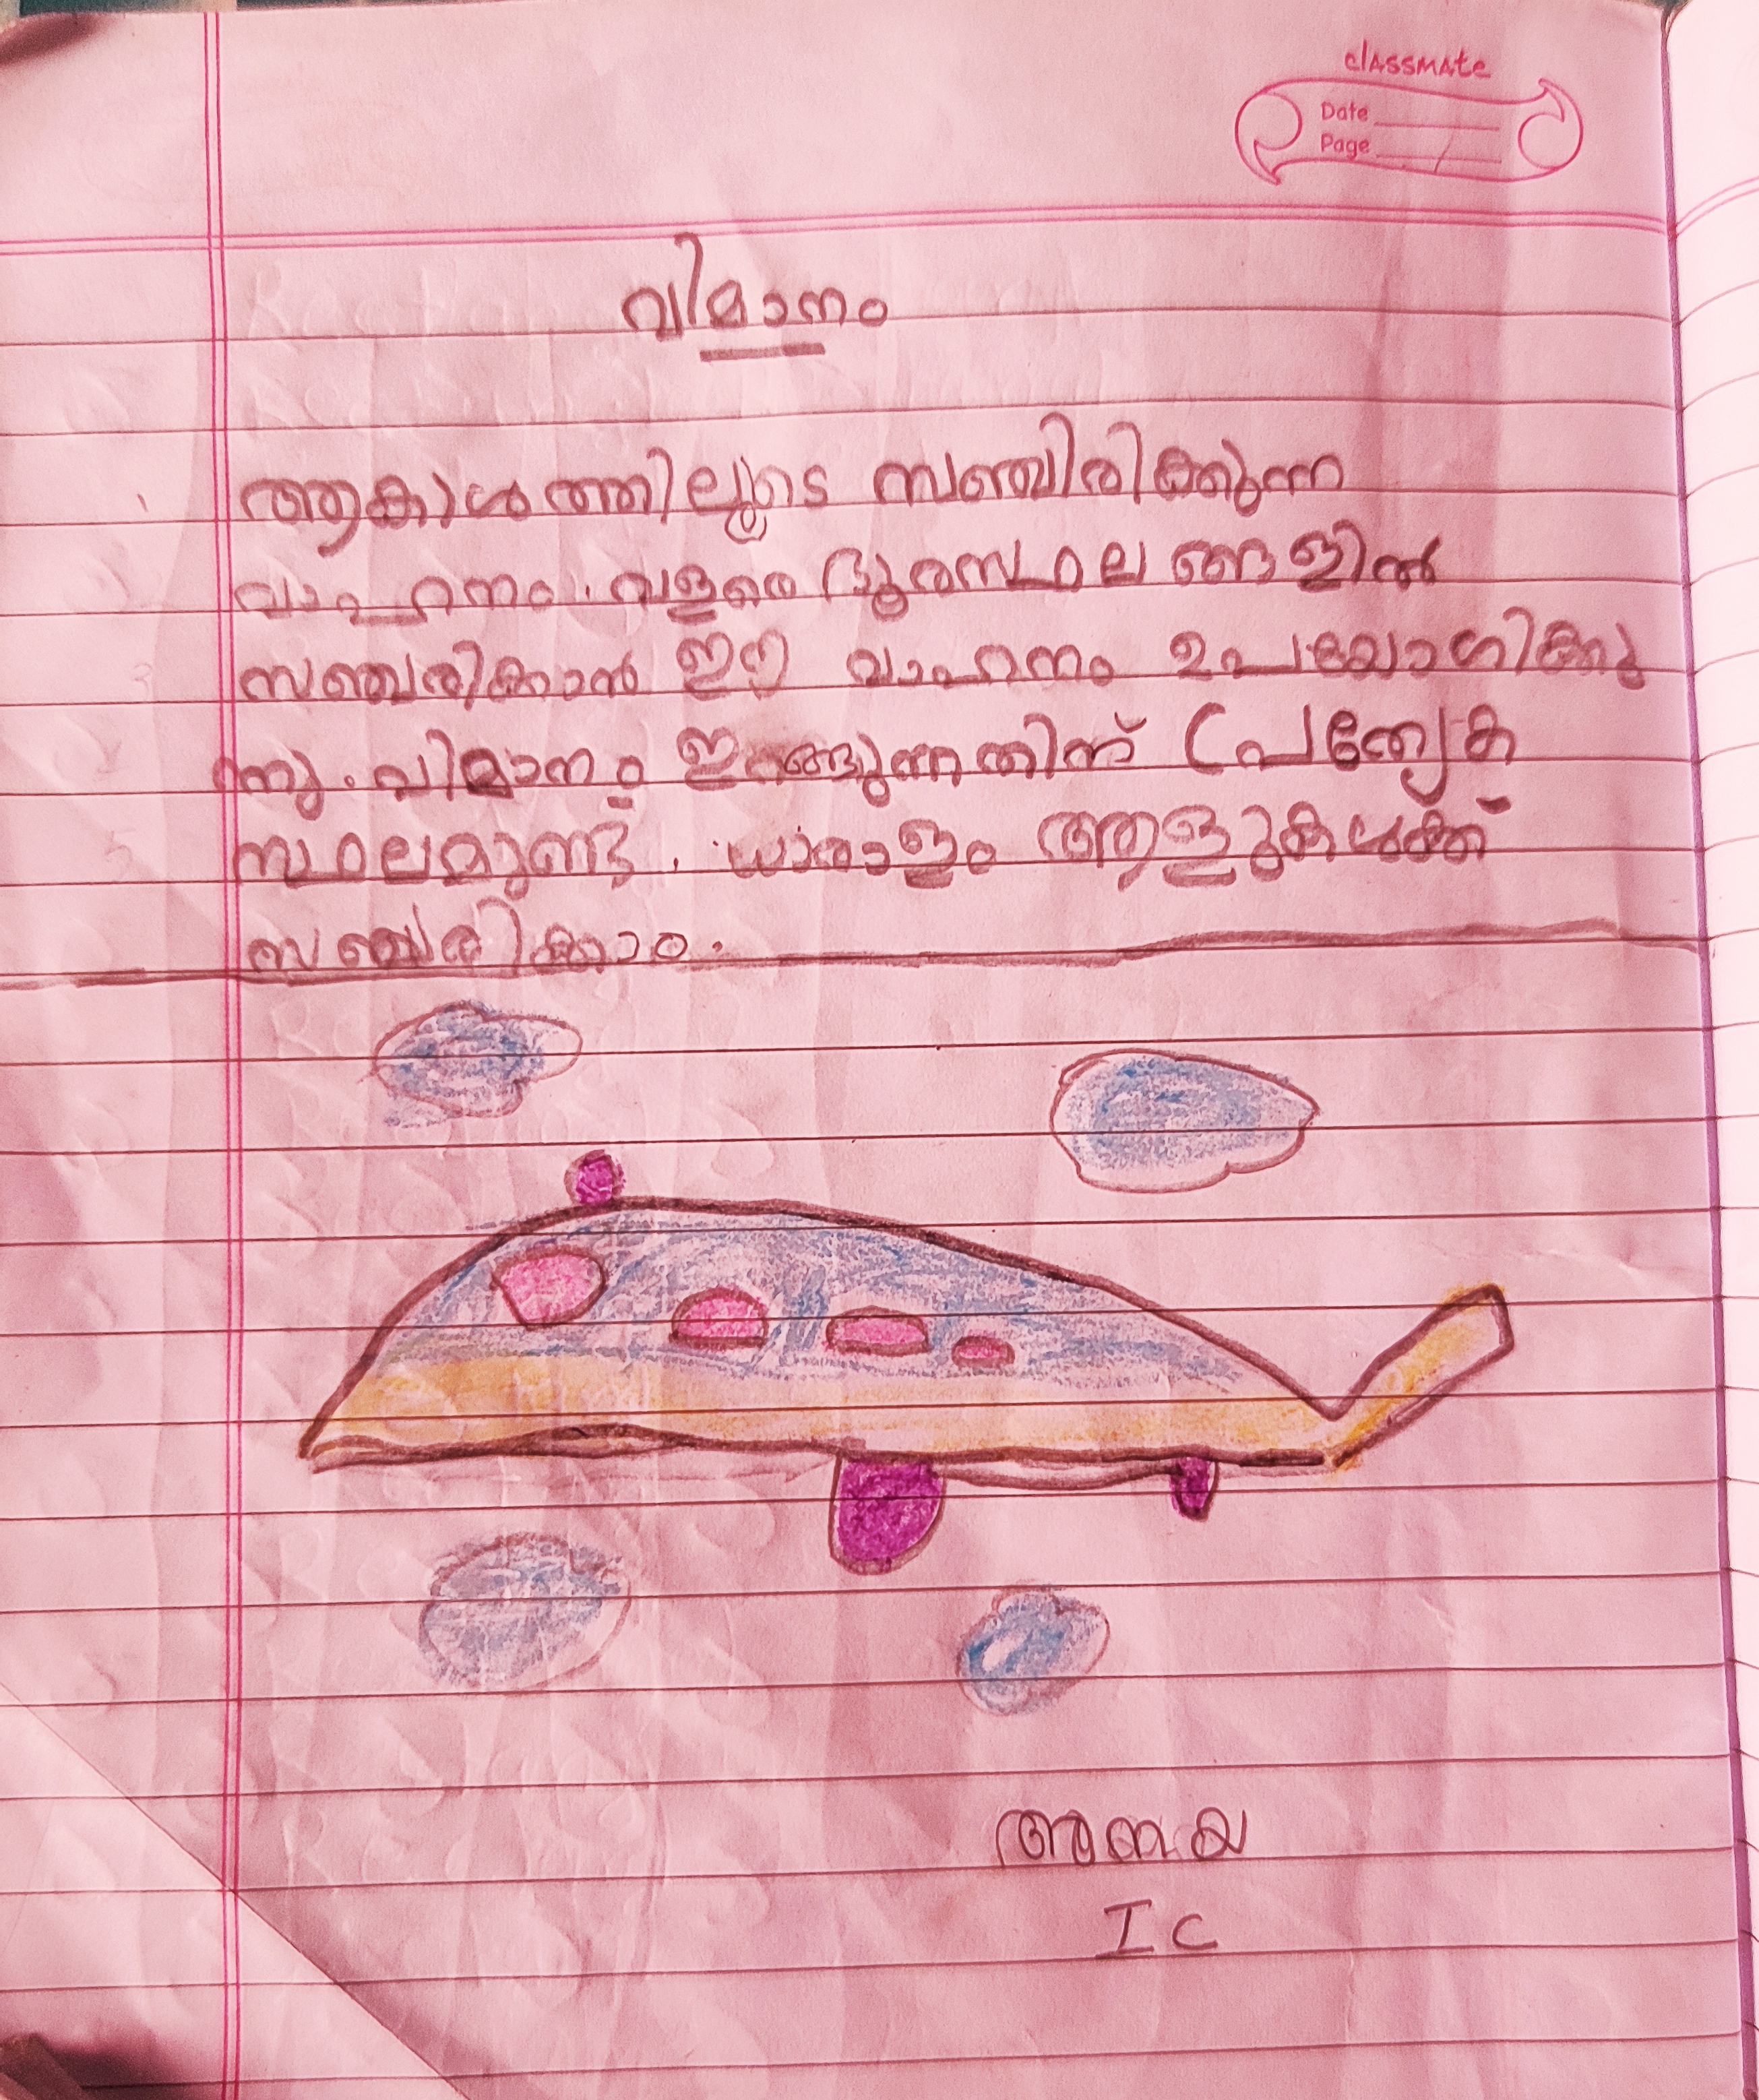 classmate
Date
Page
വിമാനം
ആകാശത്തിലൂടെ സഞ്ചിരിക്കുന്ന
വാഹനം. വളരെ ദൂരസ്ഥല ങ്ങളിൽ
സഞ്ചരിക്കാൻ ഈ വാഹനം ഉപയോഗിക്കു
ന്നു. വിമാനം ഇറങ്ങുന്നതിന് പ്രത്യേക
സ്ഥലമുണ്ട്. ധാരാളം ആളുകൾക്ക്
സഞ്ചരിക്കാം.
I C